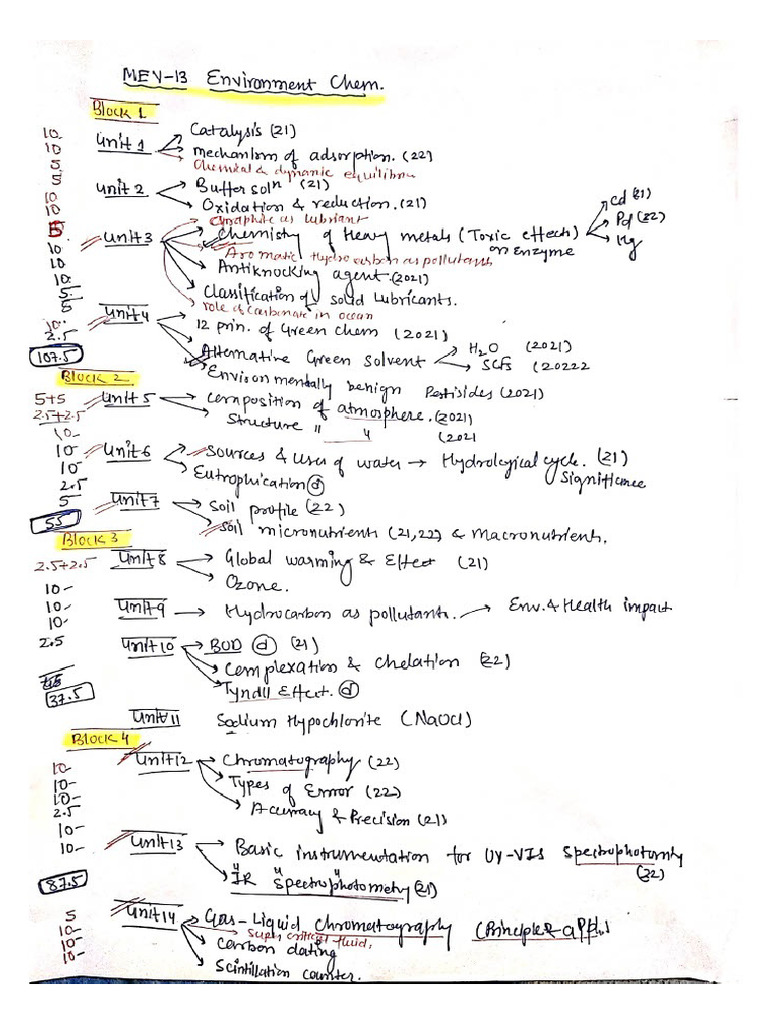 MEV-13 Environment Chem.
Block 1
10- Unit 1 → Catalysis (21)
10 → mechanism of adsorption. (22)
5 Chemical & dynamic equilibm
5 Unit 2 → Buffer solⁿ (21)
10 → Oxidation & reduction. (21)
10 Graphite as lubriant
5 Unit 3 → Chemistry of Heavy metals (Toxic effects) on Enzyme → Cd (21)
→ Pd (22)
→ Hg
10 Aromatic Hydrocarbon as pollutants
10 → Antiknocking agent. (2021)
10- → Classification of solid Lubricants.
5 role of carbonate in ocean
5
10- Unit 4 → 12 prin. of Green chem (2021)
2.5 → Alternative Green solvent → H2O (2021)
→ SCFs (20222
107.5 → Environmentally benign Pestisides (2021)
Block 2
5+5 Unit 5 → composition of atmosphere. (2021)
2.5+2.5 → Structure " " (2021
10-
10- Unit 6 → Sources & Uses of water → Hydrological cycle. (21)
Significance
10- → Eutrophication (d)
2.5
5 Unit 7 → Soil profile (22)
55 → Soil micronutrients (21,22) & Macronutrients.
Block 3
2.5+2.5 Unit 8 → Global warming & Effect (21)
10- → Ozone.
10- Unit 9 → Hydrocarbon as pollutants. → Env. & Health impact
10-
2.5 Unit 10 → BOD (d) (21)
→ Complexation & Chelation (22)
37.5 → Tyndll Effect. (d)
Unit 11 Sodium Hypochlorite (NaOCl)
Block 4
10- Unit 12 → Chromatography (22)
10- → Types of Error (22)
10-
2.5 → Accuracy & Precision (21)
10-
10- Unit 13 → Basic instrumentation for UV-VIS Spectrophotomty (22)
87.5 → " IR " Spectrophotometry " (21)
5 Unit 14 → Gas-Liquid Chromatography (Principle & appl.)
10- Super critical fluid.
10- → Carbon dating
10- → Scintillation counter.